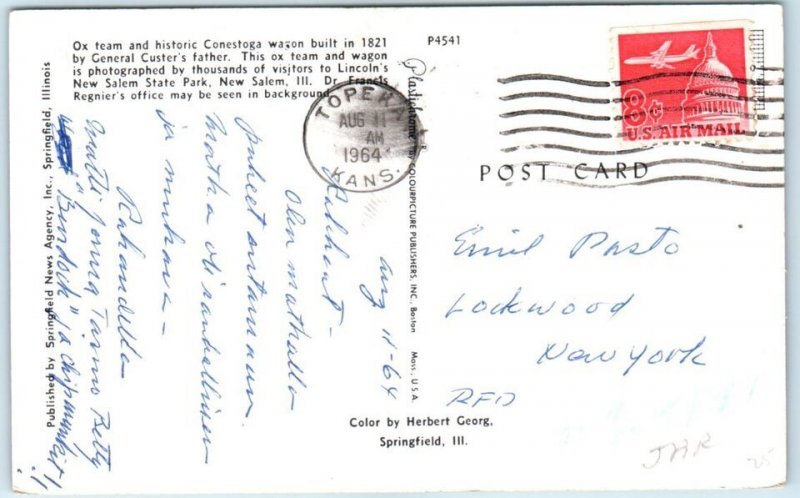 Ox team and historic Conestoga wagon built in 1821
by General Custer's father. This ox team and wagon
is photographed by thousands of visitors to Lincoln's
New Salem State Park, New Salem, Ill. Dr. Francis
Regnier's office may be seen in background.
P4541
TOPEKA
AUG 11
AM
1964
KANS.
8¢
U.S. AIR MAIL
POST CARD
Published by Springfield News Agency, Inc., Springfield, Illinois
Plastichrome by COLOURPICTURE PUBLISHERS, INC., Boston Mass. U.S.A.
Aug 11-64
Rakkaat-
Olen matkalla
puheet antamaan.
Matka oli rauhallinen
ja mukava-
Rakaudella
Matti Jorma Tarmo Betty
"Burdock" ja chipmunkit!!
Emil Pasto
Lockwood
New York
RFD
Color by Herbert Georg,
Springfield, Ill.
JHR
25